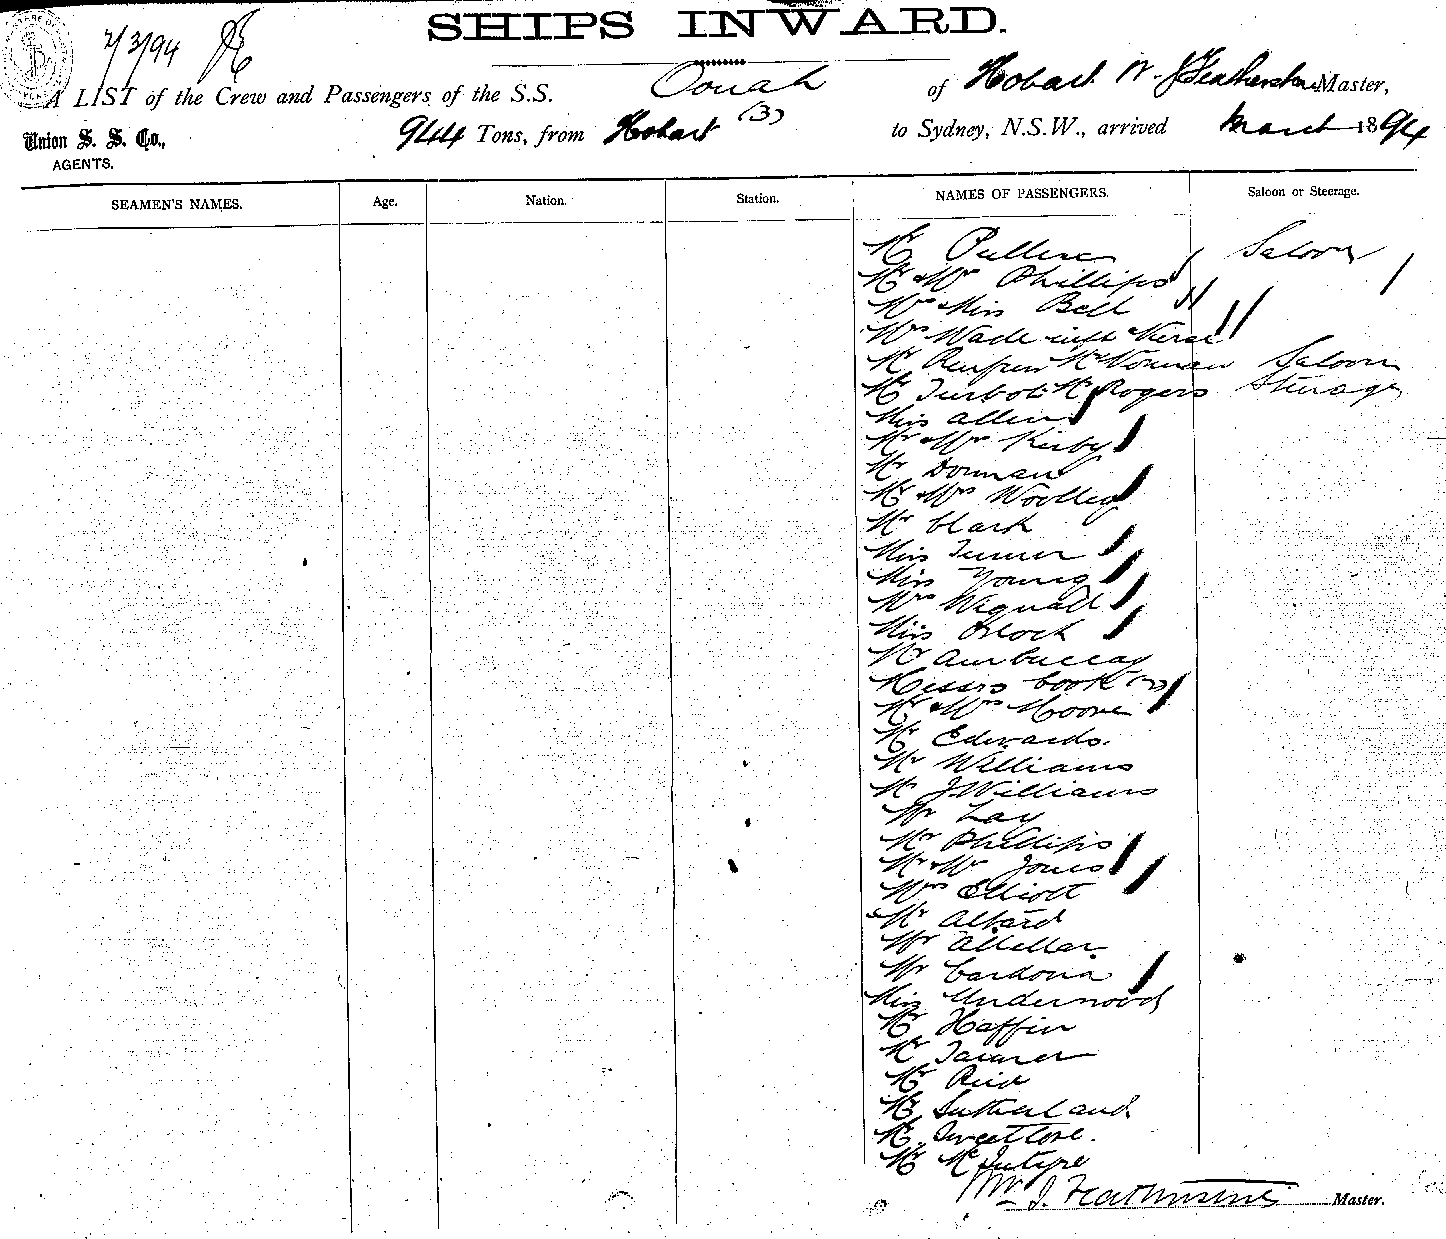 SHIPS INWARD.
2/3/94
A LIST of the Crew and Passengers of the S.S. Oonah of Hobart W. J Featherstone Master,
(3)
Union S. S. Co., 944 Tons, from Hobart to Sydney, N.S.W., arrived March 1894
AGENTS.
SEAMEN'S NAMES. Age. Nation. Station. NAMES OF PASSENGERS. Saloon or Steerage.
Mr Pullen Saloon
Mr & Mrs Phillips
Mrs & Miss Bell
Mrs Wade with Nurse
Mr Renfrew Mr Norman Saloon
Mr Turbot Mr Rogers Steerage
Miss Allen
Mr & Mrs Kirby
Mr Dorman
Mr & Mrs Woolley
Mr Clark
Miss Turner
Miss Young
Mrs Wignall
Miss Block
Mr
Messrs Cook (2)
Mr & Mrs Moore
Mr Edwards.
Mr Williams
Mr J. Williams
Mr Lay
Mr Phillips
Mr & Mrs Jones
Mrs Elliott
Mr
Mr
Mr Cardona
Miss Underwood
Mr Haffin
Mr Tanner
Mr Reid
Mr Sutherland
Mr Sweetlove.
Mr McIntyre
Wm J. Featherstone Master.